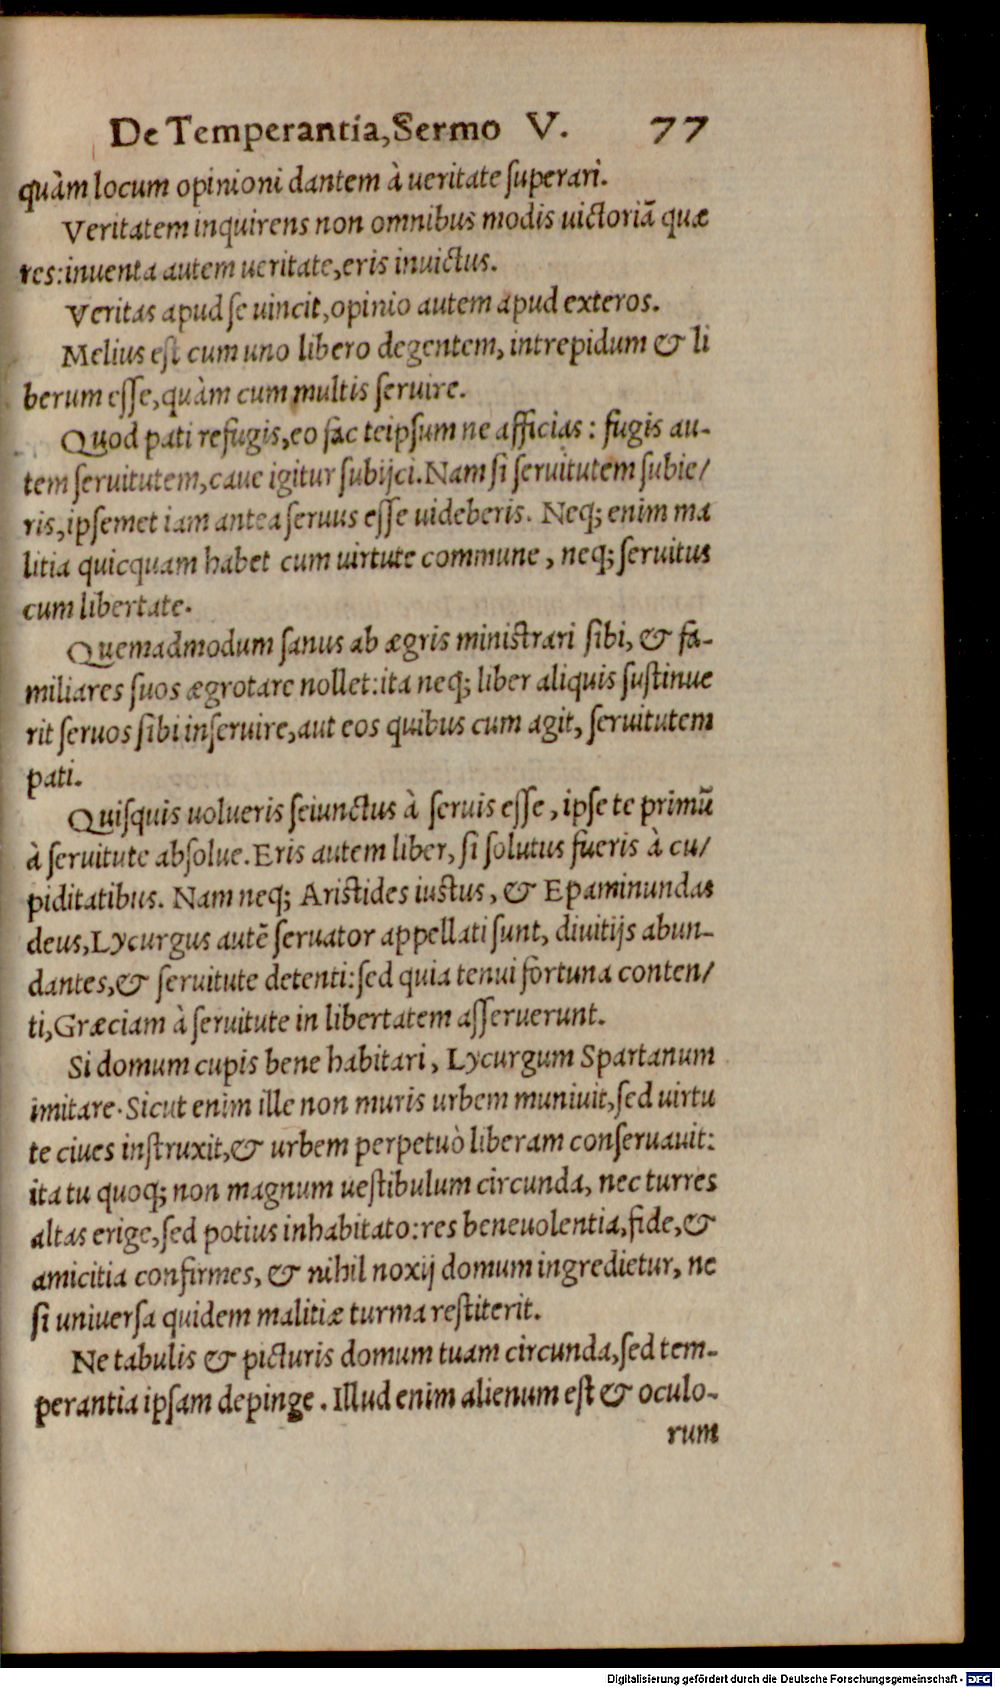 De Temperantia, Sermo V. 77
quàm locum opinioni dantem à ueritate superari.
Veritatem inquirens non omnibus modis uictoriã quæ
res: inuenta autem ueritate, eris inuictus.
Veritas apud se uincit, opinio autem apud exteros.
Melius est cum uno libero degentem, intrepidum & li
berum esse, quàm cum multis seruire.
Quod pati refugis, eo fac teipsum ne afficias: fugis au-
tem seruitutem, caue igitur subijci. Nam si seruitutem subie/
ris, ipsemet iam antea seruus esse uideberis. Neq; enim ma
litia quicquam habet cum uirtute commune, neq; seruitus
cum libertate.
Quemadmodum sanus ab ægris ministrari sibi, & fa-
miliares suos ægrotare nollet: ita neq; liber aliquis sustinue
rit seruos sibi inseruire, aut eos quibus cum agit, seruitutem
pati.
Quisquis uolueris seiunctus à seruis esse, ipse te primũ
à seruitute absolue. Eris autem liber, si solutus fueris à cu/
piditatibus. Nam neq; Aristides iustus, & Epaminundas
deus, Lycurgus autẽ seruator appellati sunt, diuitijs abun-
dantes, & seruitute detenti: sed quia tenui fortuna conten/
ti, Græciam à seruitute in libertatem asseruerunt.
Si domum cupis bene habitari, Lycurgum Spartanum
imitare. Sicut enim ille non muris urbem muniuit, sed uirtu
te ciues instruxit, & urbem perpetuò liberam conseruauit:
ita tu quoq; non magnum uestibulum circunda, nec turres
altas erige, sed potius inhabitato: res beneuolentia, fide, &
amicitia confirmes, & nihil noxij domum ingredietur, ne
si uniuersa quidem malitiæ turma restiterit.
Ne tabulis & picturis domum tuam circunda, sed tem-
perantia ipsam depinge. Illud enim alienum est & oculo-
rum
Digitalisierung gefördert durch die Deutsche Forschungsgemeinschaft - DFG